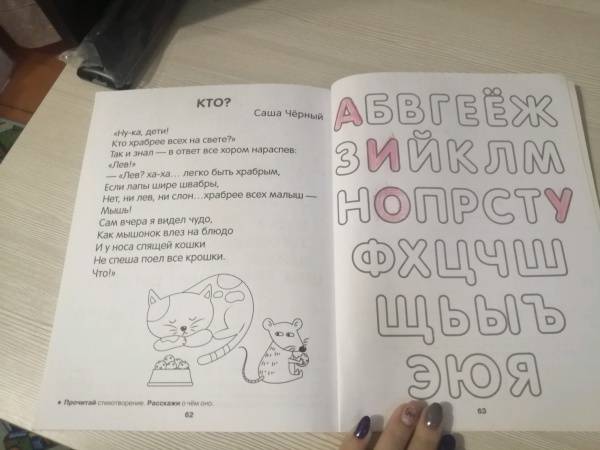 КТО?
Саша Чёрный
«Ну-ка, дети!
Кто храбрее всех на свете?»
Так и знал — в ответ все хором нараспев:
«Лев!»
— «Лев? ха-ха... легко быть храбрым,
Если лапы шире швабры,
Нет, ни лев, ни слон...храбрее всех малыш —
Мышь!
Сам вчера я видел чудо,
Как мышонок влез на блюдо
И у носа спящей кошки
Не спеша поел все крошки.
Что!»
• Прочитай стихотворение. Расскажи о чём оно.
62
АБВГЕЁЖ
ЗИЙКЛМ
НОПРСТУ
ФХЦЧШ
ЩЬЫЪ
ЭЮЯ
63